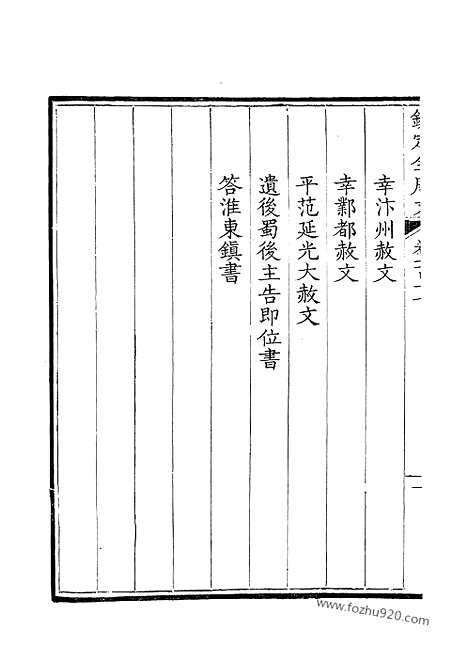 欽定全唐文
幸汴州赦文
幸鄴都赦文
平范延光大赦文
遺後蜀後主告即位書
答淮東鎮書
www.fozhu920.com